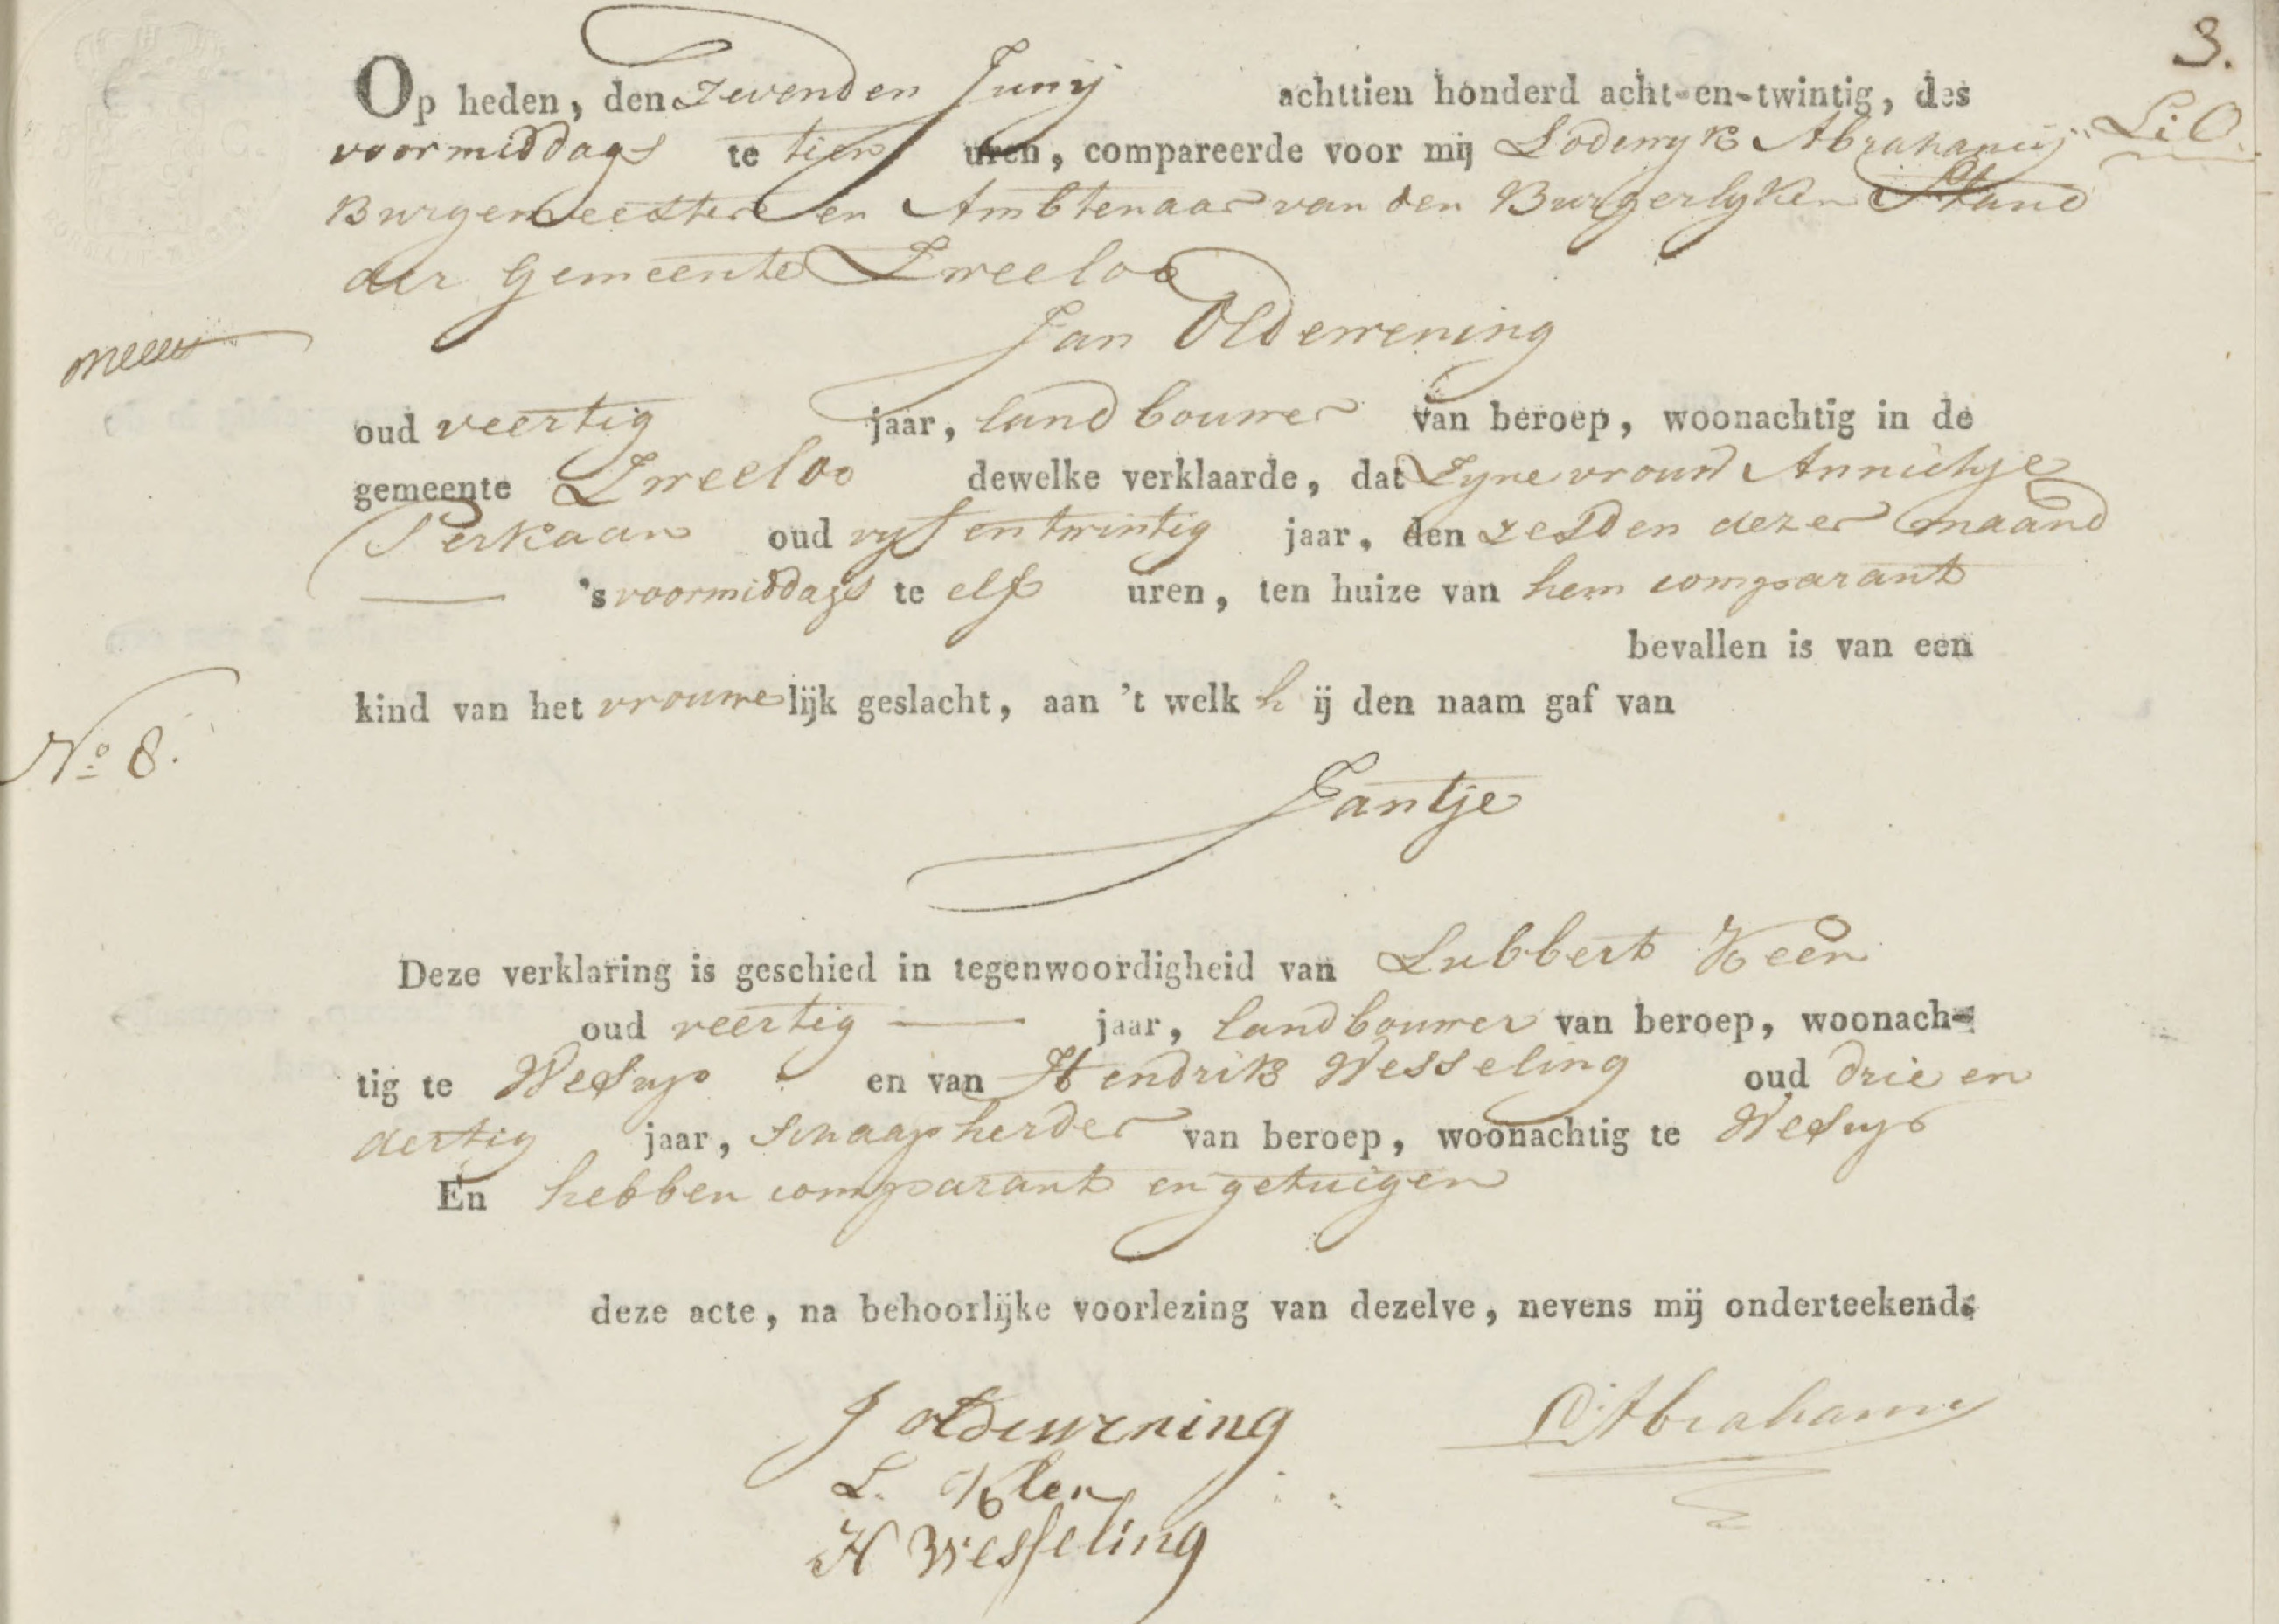 3.
L: O.
Op heden, den zevenden Junij achttien honderd acht-en-twintig, des
voormiddags te tien uren, compareerde voor mij Lodewyk Abrahamij
Burgemeester en Ambtenaar van den Burgerlyken Stand
der Gemeente Zweeloo
Jan Oldewening
oud veertig jaar, landbouwer van beroep, woonachtig in de
gemeente Zweeloo dewelke verklaarde, dat Zyne vrouw Annichje
Perkaan oud vyf en twintig jaar, den zesden dezer maand
's voormiddags te elf uren, ten huize van hem comparant
bevallen is van een
kind van het vrouwelijk geslacht, aan 't welk hij den naam gaf van
No 8.
Jantje
Deze verklaring is geschied in tegenwoordigheid van Lubbert Keen
oud veertig jaar, landbouwer van beroep, woonach-
tig te Wesup en van Hendrik Wesseling oud drie en
dertig jaar, Schaapherder van beroep, woonachtig te Wesup
En hebben comparant en getuigen
deze acte, na behoorlijke voorlezing van dezelve, nevens mij onderteekend.
J oldewening
L Abrahamij
L. Keen
H Wesseling